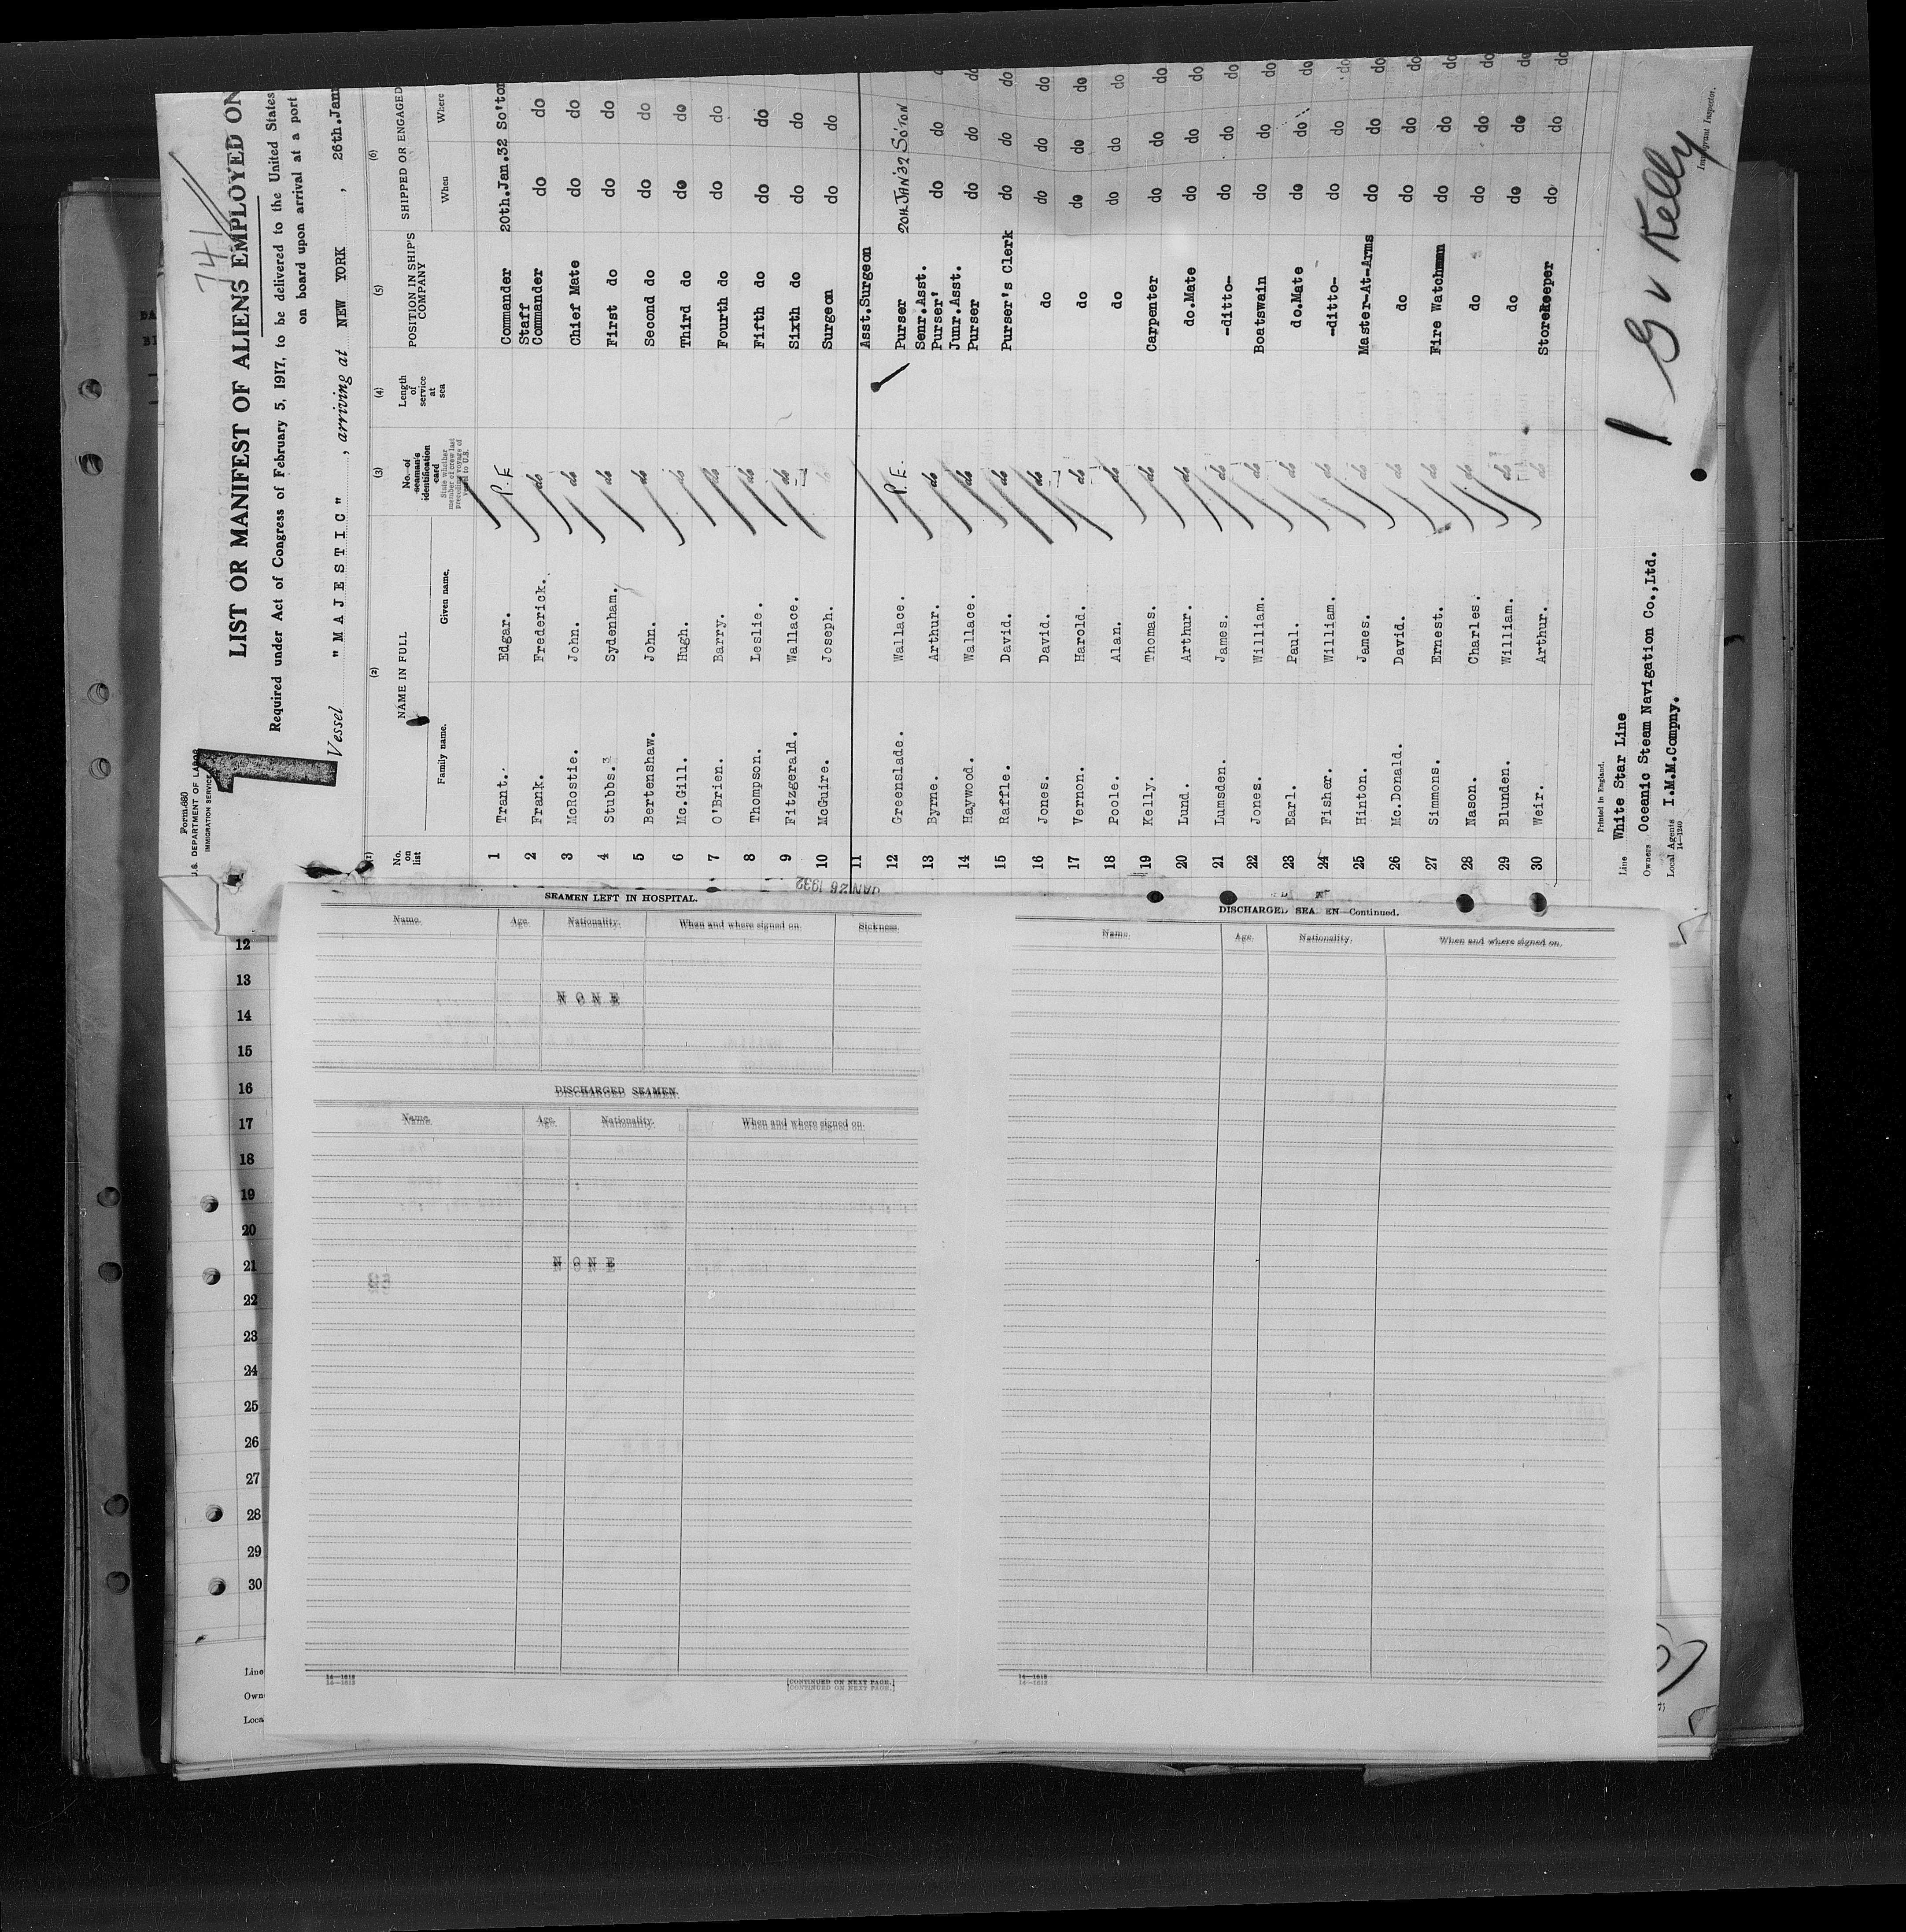 Form 680
U.S. DEPARTMENT OF LABOR
IMMIGRATION SERVICE
1
741
LIST OR MANIFEST OF ALIENS EMPLOYED ON
Required under Act of Congress of February 5, 1917, to be delivered to the United States
on board upon arrival at a port
Vessel "MAJESTIC", arriving at NEW YORK, 26th.Jan
(1) (2) (3) (4) (5) (6)
No. on list NAME IN FULL No. of seaman's identification card Length of service at sea POSITION IN SHIP'S COMPANY SHIPPED OR ENGAGED
State whether member of crew last preceding voyage of vessel to U.S.
Family name. Given name. When Where
1 Trant. Edgar. P.E Commander 20th.Jan.32 So'ton
2 Frank. Frederick. do Staff Commander do do
3 McRostie. John. do Chief Mate do do
4 Stubbs. Sydenham. do First do do do
5 Bertenshaw. John. do Second do do do
6 Mc.Gill. Hugh. do Third do do do
7 O'Brien. Barry. do Fourth do do do
8 Thompson. Leslie. do Fifth do do do
9 Fitzgerald. Wallace. do Sixth do do do
10 McGuire. Joseph. do Surgeon do do
11 Asst.Surgeon
12 Greenslade. Wallace. P.E. Purser 20th JAN'32 SO'TON
13 Byrne. Arthur. do Senr.Asst. Purser' do do do
14 Haywood. Wallace. do Junr.Asst. Purser do do do
15 Raffle. David. do Purser's Clerk do do do
16 Jones. David. do do do do do
17 Vernon. Harold. do do do do do
18 Poole. Alan. do do do do do
19 Kelly. Thomas. do Carpenter do do do
20 Lund. Arthur. do do.Mate do do do
21 Lumsden. James. do -ditto- do do do
22 Jones. William. do Boatswain do do do
23 Earl. Paul. do do.Mate do do do
24 Fisher. William. do -ditto- do do do
25 Hinton. James. do Master-At-Arms do do do
26 Mc.Donald. David. do do do do do
27 Simmons. Ernest. do Fire Watchman do do do
28 Nason. Charles. do do do do do
29 Blunden. William. do do do do do
30 Weir. Arthur. do Storekeeper do do do
Printed in England.
Line White Star Line
Owners Oceanic Steam Navigation Co.,Ltd.
Local Agents I.M.M.Compny.
14-1240
1 G V Kelly
Immigrant Inspector.
JAN 26 1932
SEAMEN LEFT IN HOSPITAL.
Name. Age. Nationality. When and where signed on. Sickness.
NONE
DISCHARGED SEAMEN.
Name. Age. Nationality. When and where signed on.
NONE
14-1612
[CONTINUED ON NEXT PAGE.]
DISCHARGED SEA EN—Continued.
Name. Age. Nationality. When and where signed on.
14-1612
12
13
14
15
16
17
18
19
20
21
22
23
24
25
26
27
28
29
30
Line
Own
Loca